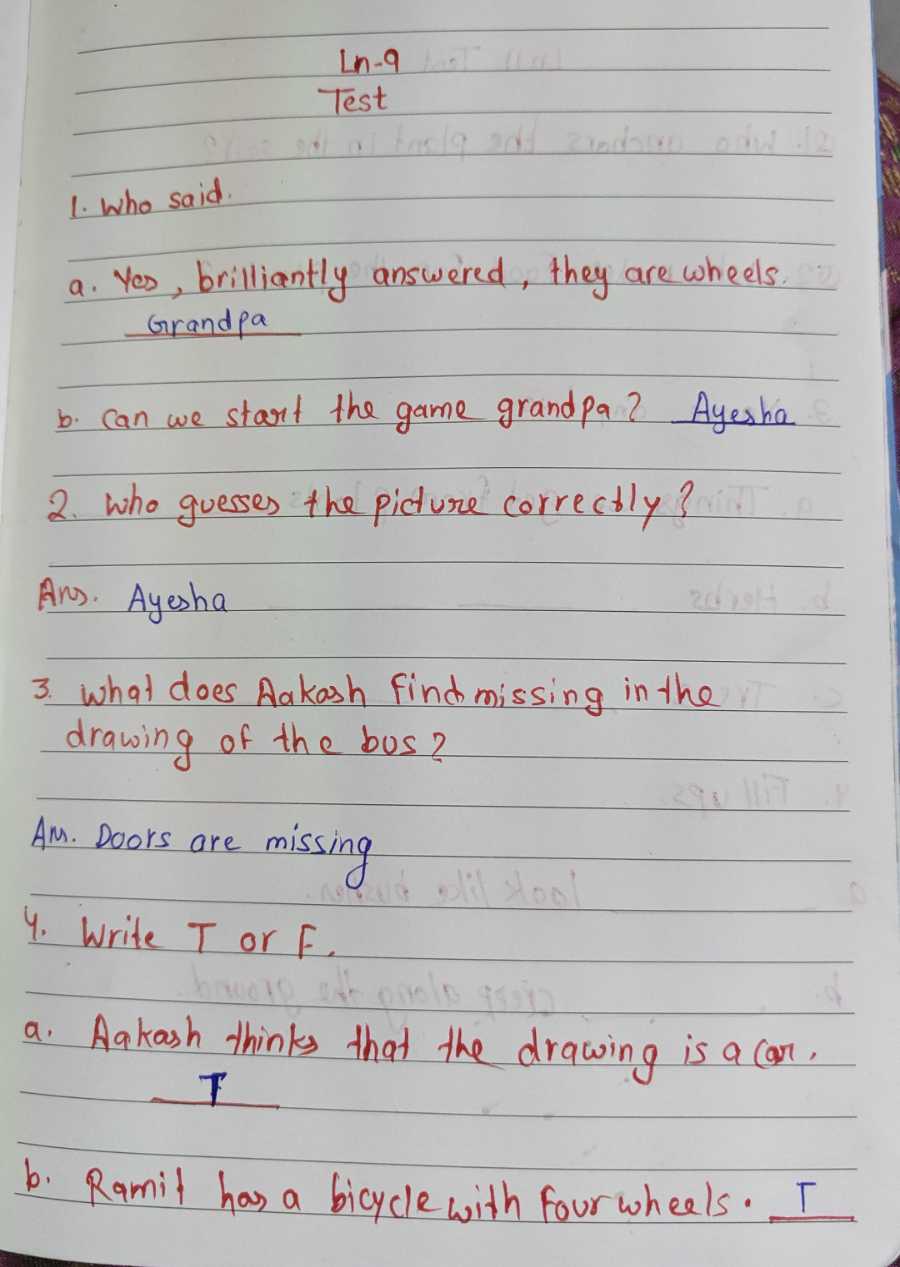 Ln-9
Test
1. Who said.
a. Yes, brilliantly answered, they are wheels.
Grandpa
b. Can we start the game grandpa? Ayesha
2. Who guesses the picture correctly?
Ans. Ayesha
3. What does Aakash find missing in the
drawing of the bus?
Ans. Doors are missing
4. Write T or F.
a. Aakash thinks that the drawing is a car.
T
b. Ramit has a bicycle with four wheels. T